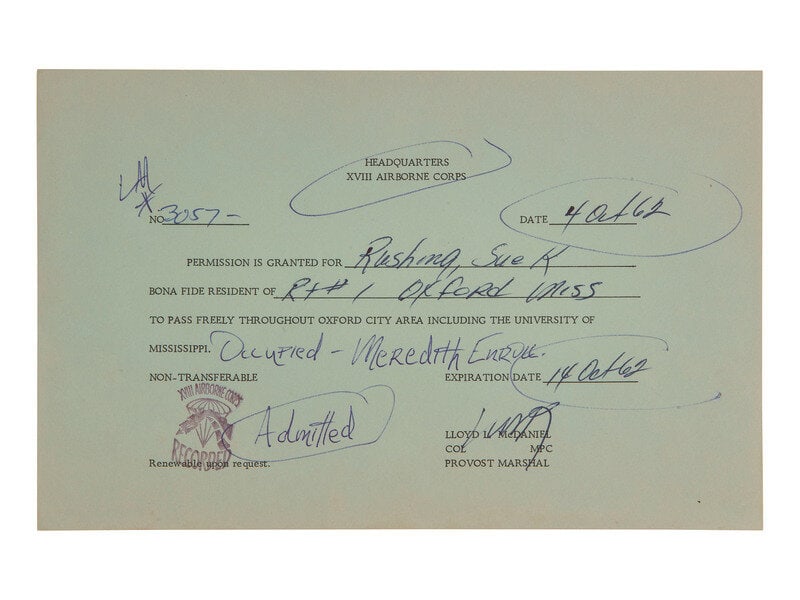 HEADQUARTERS
XVIII AIRBORNE CORPS
NO. 3057-
DATE 4 Oct 62
PERMISSION IS GRANTED FOR Rushing, Sue K
BONA FIDE RESIDENT OF Rt # 1 Oxford Miss
TO PASS FREELY THROUGHOUT OXFORD CITY AREA INCLUDING THE UNIVERSITY OF
MISSISSIPPI. Occupied - Meredith Enroll.
NON-TRANSFERABLE
EXPIRATION DATE 14 Oct 62
XVIII AIRBORNE CORPS
RECORDED
Admitted
LLOYD L. McDANIEL
COL MPC
Renewable upon request.
PROVOST MARSHAL